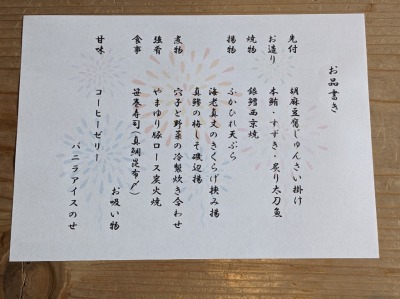 お品書き
先付 胡麻豆腐じゅんさい掛け
お造り 本鮪・すずき・炙り太刀魚
焼物 銀鱈西京焼
揚物 ふかひれ天ぷら
海老真丈のきくらげ挟み揚
真鯵の梅しそ磯辺揚
煮物 穴子と野菜の冷製炊き合わせ
強肴 やまゆり豚ロース炭火焼
食事 笹巻寿司(真鯛昆布〆)
お吸い物
甘味 コーヒーゼリー
バニラアイスのせ